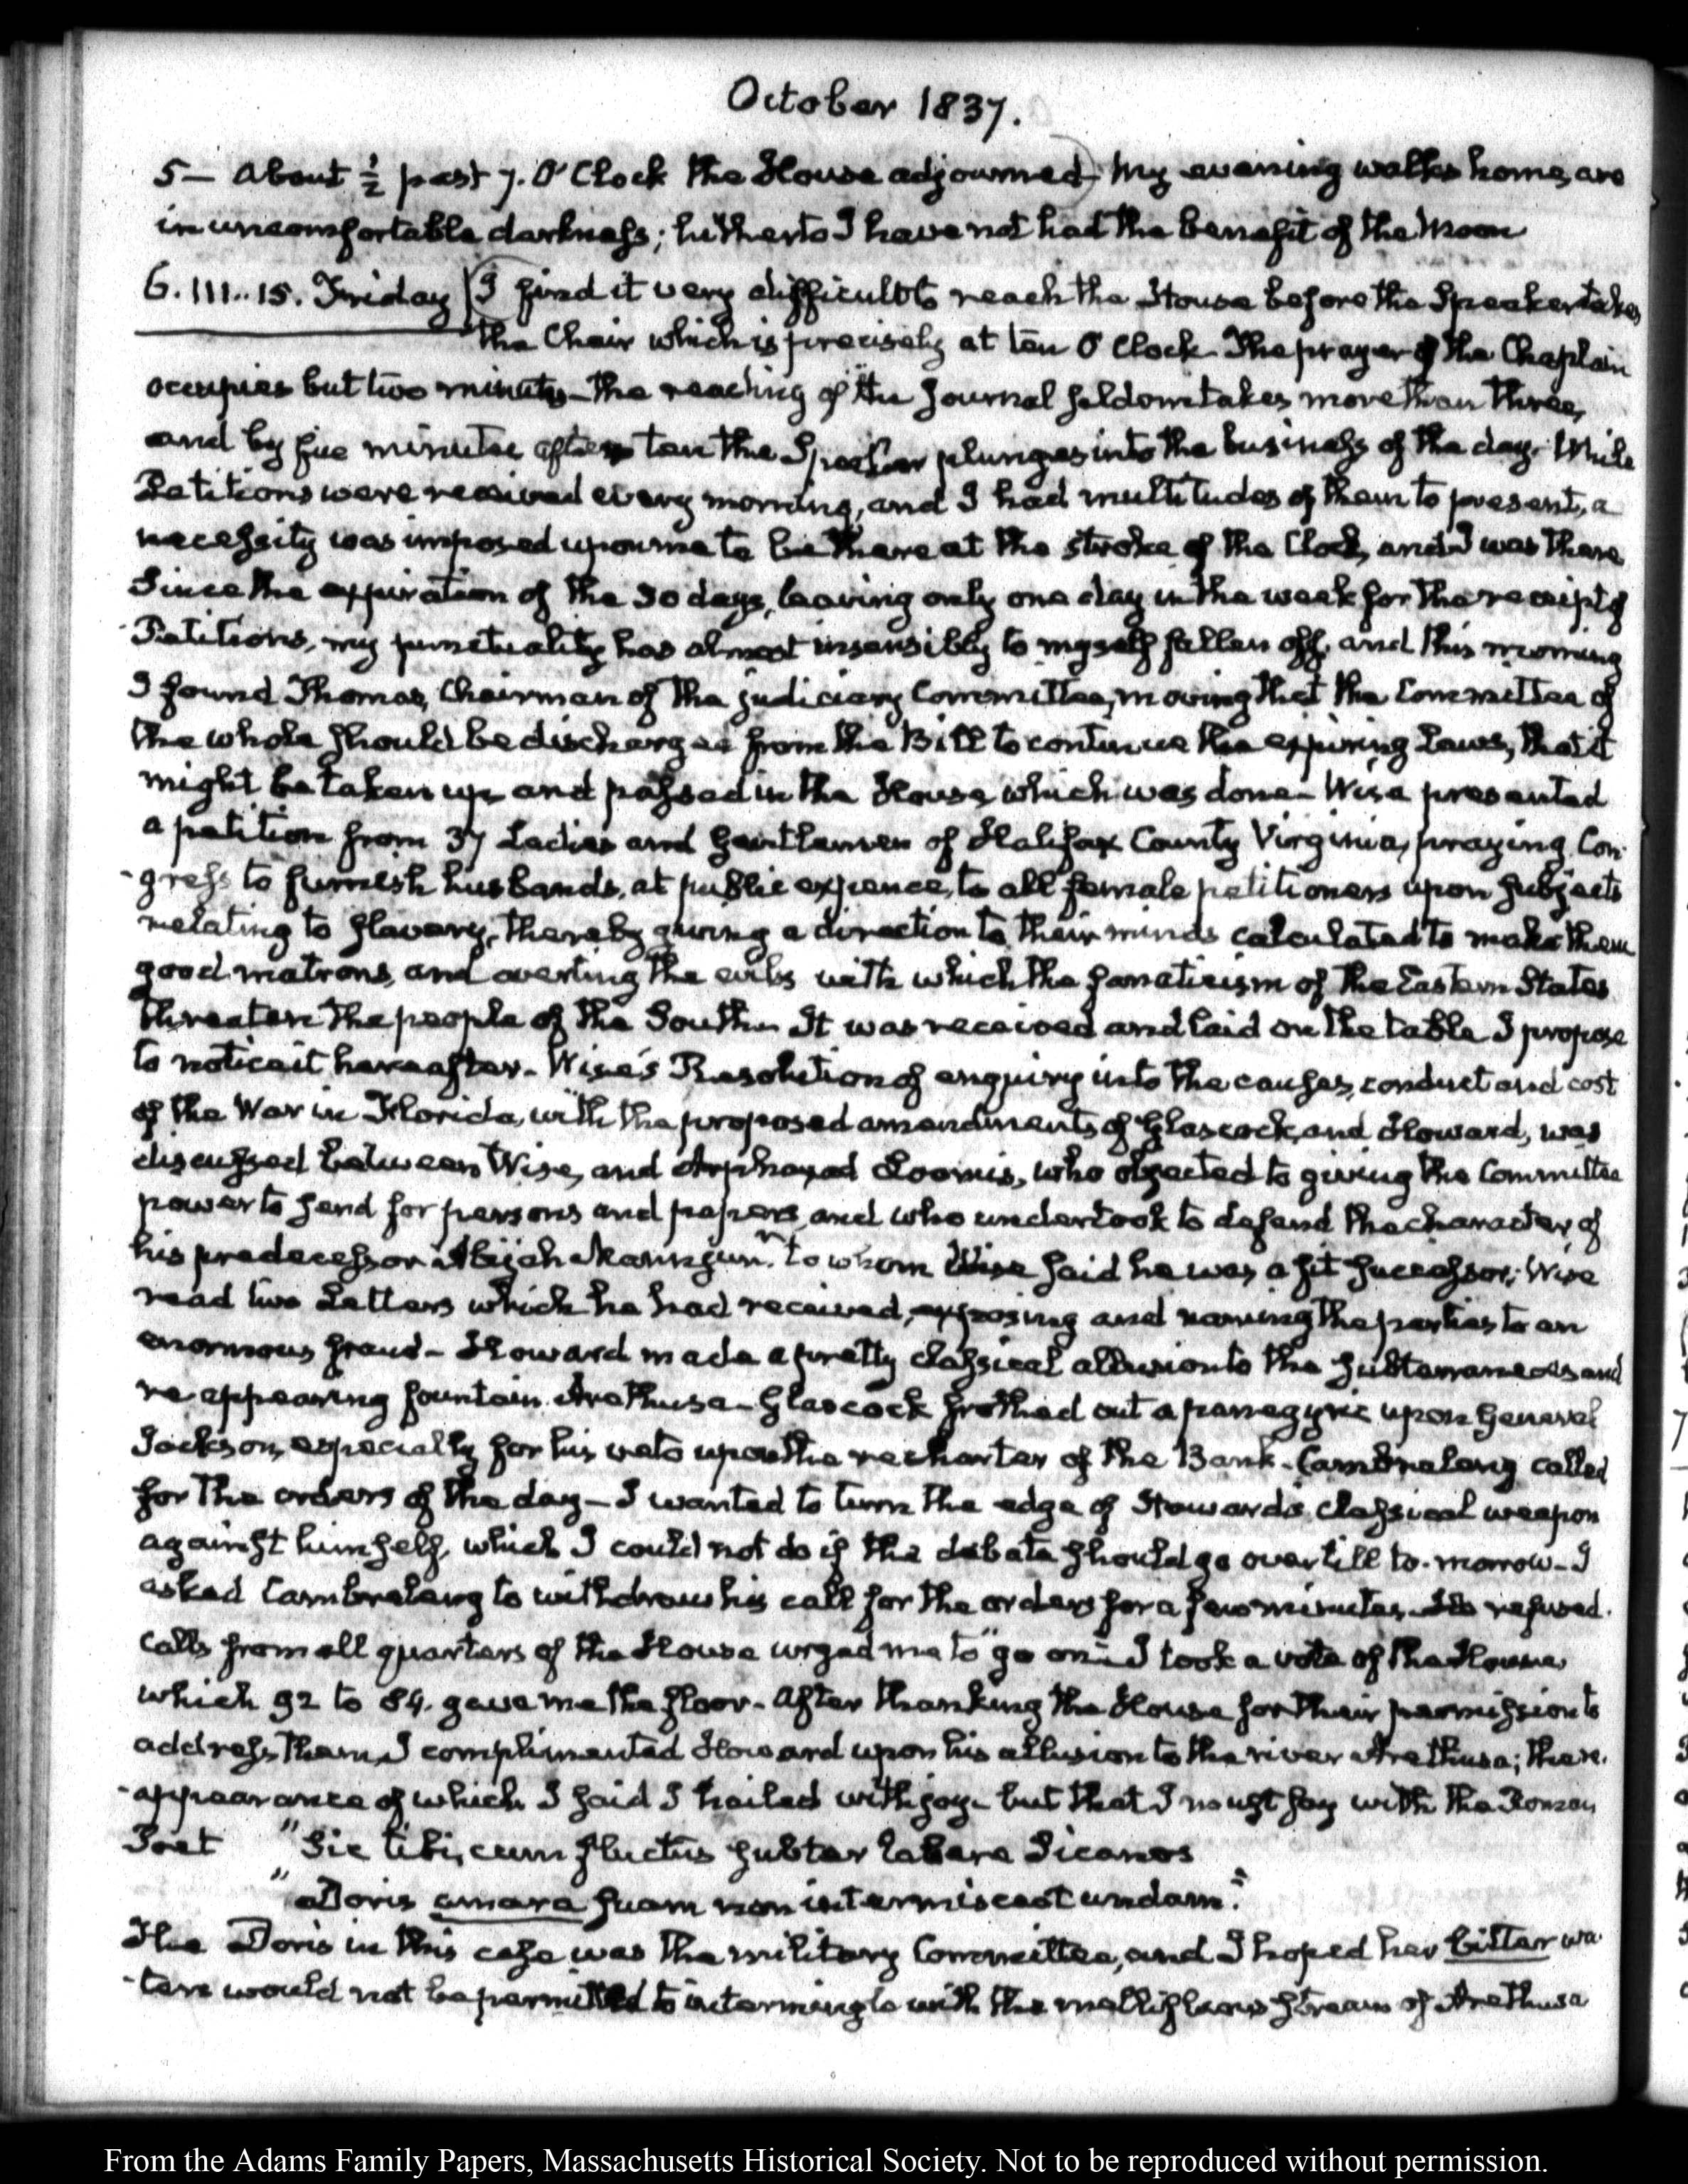 October 1837.
5— About ½ past 7. O'Clock the House adjourned) My evening walks home, are
in uncomfortable darkness; hitherto I have not had the benefit of the Moon
6. III..15. Friday (I find it very difficult to reach the House before the Speaker takes
the Chair which is precisely at ten O'Clock The prayer of the Chaplain
occupies but two minutes— the reading of the Journal seldom takes more than three,
and by five minutes after ten the Speaker plunges into the business of the day. While
Petitions were received every morning, and I had multitudes of them to present, a
necessity was imposed upon me to be there at the stroke of the Clock, and I was there
Since the expiration of the 30 days, leaving only one day in the week for the receipt of
Petitions, my punctuality has almost insensibly to myself fallen off, and this morning
I found Thomas, Chairman of the judiciary Committee, moving that the Committee of
the whole should be discharged from the Bill to continue the expiring Laws, that it
might be taken up and passed in the House, which was done— Wise presented
a petition from 37 Ladies and Gentlemen of Halifax County Virginia, praying Con-
-gress to furnish husbands, at public expence, to all female petitioners upon subjects
relating to slavery, thereby giving a direction to their minds calculated to make them
good matrons, and averting the evils with which the fanaticism of the Eastern States
threaten the people of the South— It was received and laid on the table I propose
to notice it hereafter— Wise's Resolution of enquiry into the causes, conduct and cost
of the War in Florida, with the proposed amendments of Glascock, and Howard, was
discussed between Wise, and Arphaxad Loomis, who objected to giving the Committee
power to send for persons and papers, and who undertook to defend the character of
his predecessor Abijah Mann junr. to whom Wise said he was a fit successor; Wise
read two Letters which he had received, exposing and naming the parties to an
enormous fraud— Howard made a pretty classical allusion to the subterraneous and
re appearing fountain Arethusa— Glascock frothed out a panegyric upon General
Jackson, especially for his veto upon the recharter of the Bank— Cambreleng called
for the orders of the day— I wanted to turn the edge of Howard's classical weapon
against himself, which I could not do if the debate should go over till to-morrow— I
asked Cambreleng to withdraw his call for the orders for a few minutes— He refused.
calls from all quarters of the House urged me to "go on"— I took a vote of the House,
which 92 to 84. gave me the floor— After thanking the House for their permission to
address them, I complimented Howard upon his allusion to the river Arethusa; the re-
-appearance of which I said I hailed with joy— but that I must say with the Roman
Poet "Sic tibi, cum fluctus subter labere Sicanos
"Doris amara suam non intermisceat undam."
The Doris in this case was the military Committee, and I hoped her bitter wa-
-ters would not be permitted to intermingle with the mellifluous stream of Arethusa
From the Adams Family Papers, Massachusetts Historical Society. Not to be reproduced without permission.